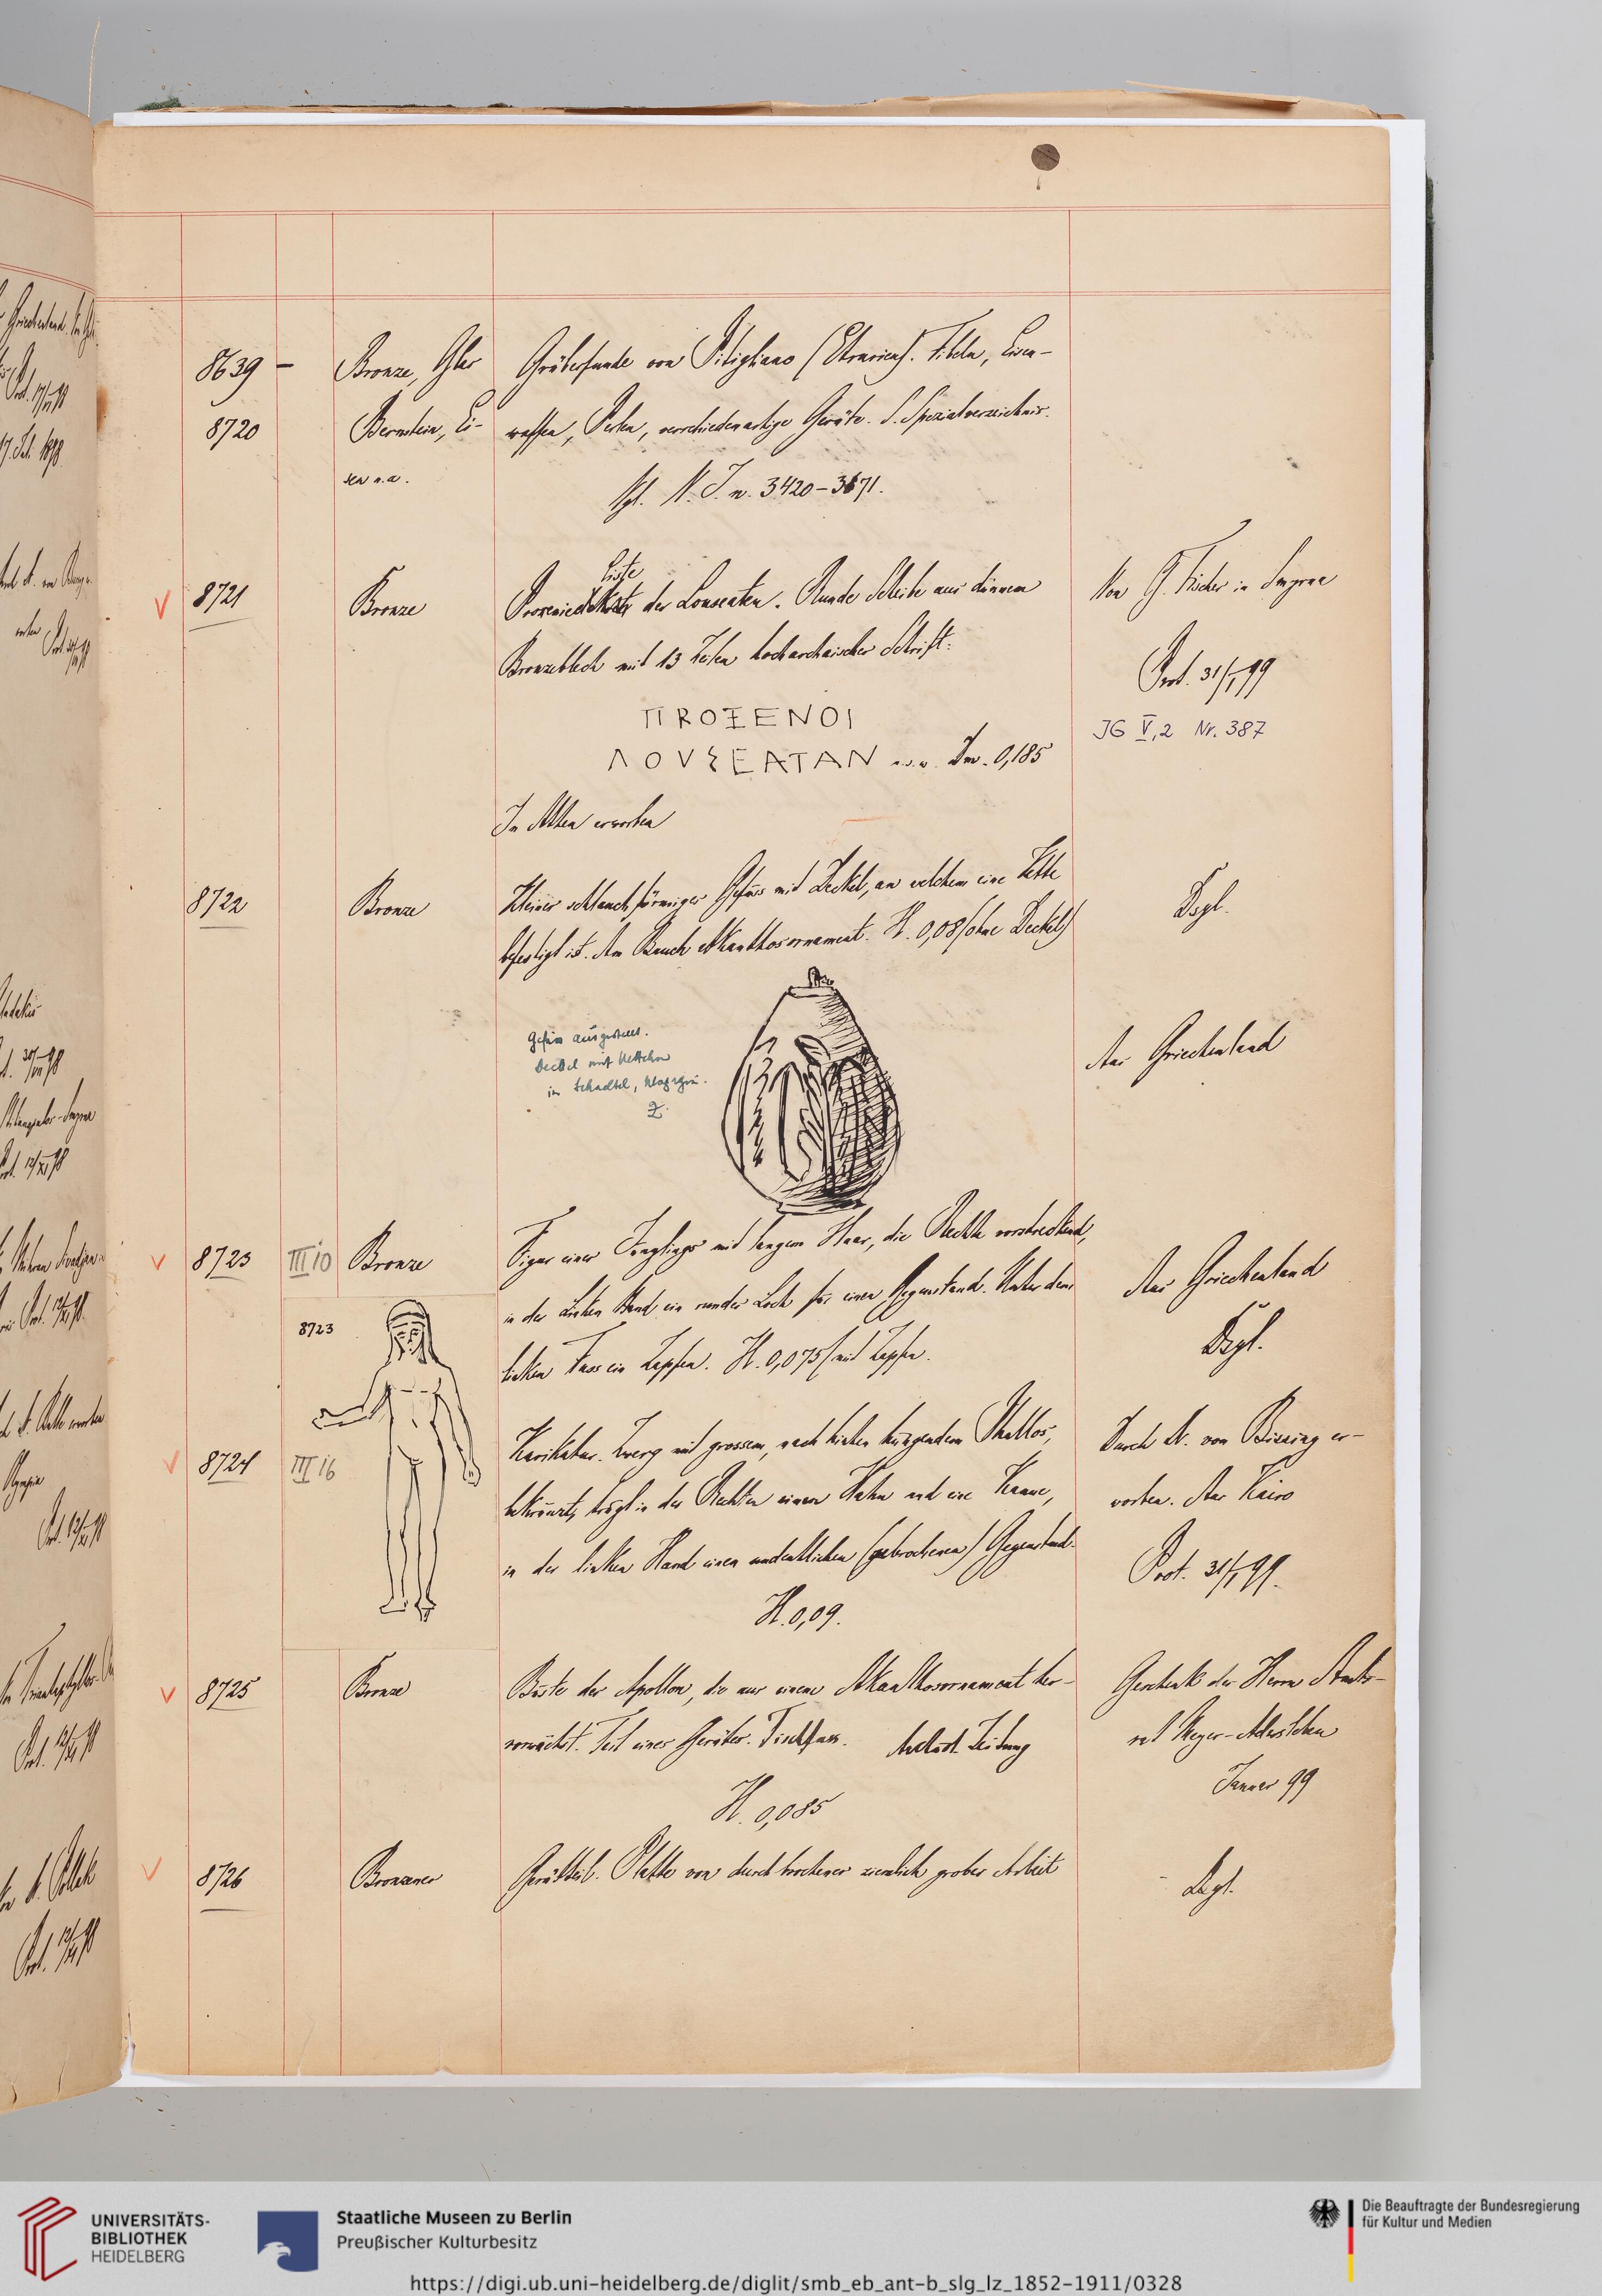 8639 – Bronze, Glas Gräberfunde von Pitigliano (Etrurien). Fibeln, Eisen-
8720 Bernstein, Ei- waffen, Perlen, verschiedenartige Geräte. S. Spezialverzeichnis.
sen u.a. Vgl. N. I. n. 3420–3671.
Liste
8721 Bronze Proxenie der Louseaten. Runde Scheibe aus dünnem Von G. Fischer in Smyrna
Bronzeblech mit 13 Zeilen hocharchaischer Schrift: Prot. 31/I 99
ΠROΞENOI
IG V,2 Nr. 387
ΛOVSEATAN u.s.w. Dm. 0,185
In Athen erworben
8722 Bronze Kleines schlauchförmiges Gefäss mit Deckel, an welchem eine Kette Dsgl.
befestigt ist. Am Bauch Akanthosornament. H. 0,08 (ohne Deckel)
Gefäss ausgestellt.
Deckel mit Kettchen
in Schachtel,
Z.
Aus Griechenland
8723 III 10 Bronze Figur eines Jünglings mit langem Haar, die Rechte vorstreckend, Aus Griechenland
in der linken Hand ein rundes Loch für einen Gegenstand. Unter dem Dsgl.
8723
linken Fuss ein Zapfen. H. 0,075 (mit Zapfen.
8724 III 16 Karikatur. Zwerg mit grossem, nach hinten hängendem Phallos, Durch Dr. von Bissing er-
bekränzt, trägt in der Rechten einen Hahn und eine Kanne, worben. Aus Kairo
in der linken Hand einen undeutlichen (gebrochenen) Gegenstand. Prot. 31/I 99.
H. 0,09.
8725 Bronze Büste des Apollon, die aus einem Akanthosornament her- Geschenk des Herrn Amts-
vorwächst. Teil eines Gerätes. Tischfuss. Zeitung rat Meyer-
H. 0,085 Januar 99
8726 Bronzener Geräthteil. Platte von durchbrochener ziemlich grober Arbeit Dsgl.
UNIVERSITÄTS-
BIBLIOTHEK
HEIDELBERG
Staatliche Museen zu Berlin
Preußischer Kulturbesitz
Die Beauftragte der Bundesregierung
für Kultur und Medien
https://digi.ub.uni-heidelberg.de/diglit/smb_eb_ant-b_slg_lz_1852-1911/0328